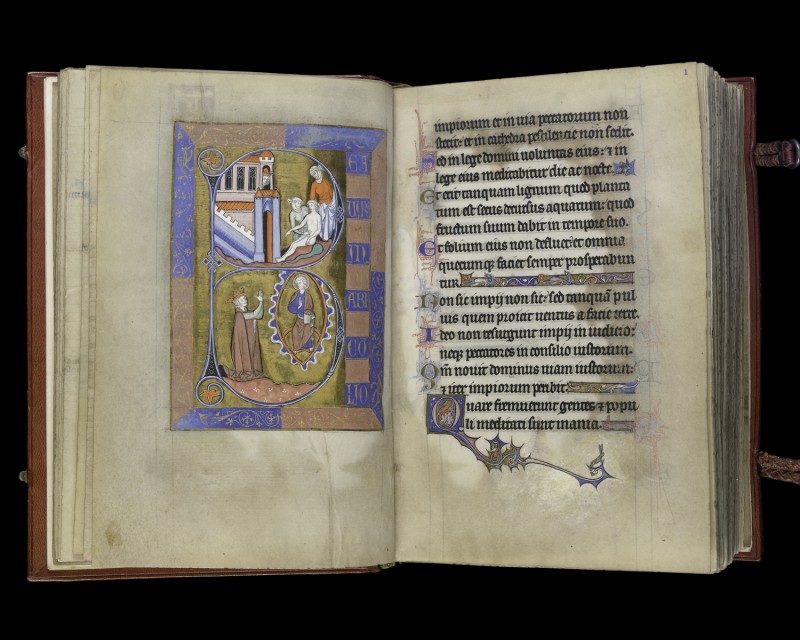 ABI
CO
LIO
1
impiorum et in uia peccatorum non
stetit: et in cathedra pestilencie non sedit.
Sed in lege domini uoluntas eius: ⁊ in
lege eius meditabitur die ac nocte.
Et erit tanquam lignum quod planta
tum est secus decursus aquarum: quod
fructum suum dabit in tempore suo.
Et folium eius non defluet: et omnia
quecumq; faciet semper prosperabun
tur.
Non sic impij non sic: sed tanquā pul
uis quem proicit uentus a facie terre.
Ideo non resurgunt impij in iudicio:
neq; peccatores in consilio iustorum.
Qm̄ nouit dominus uiam iustorum:
⁊ iter impiorum peribit.
Quare fremuerunt gentes ⁊ popu
li meditati sunt inania.